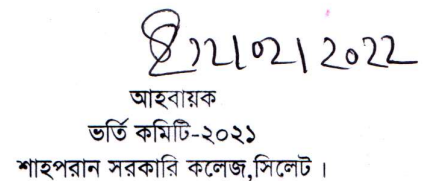 12/02/2022
আহবায়ক
ভর্তি কমিটি-২০২১
শাহপরান সরকারি কলেজ,সিলেট ।